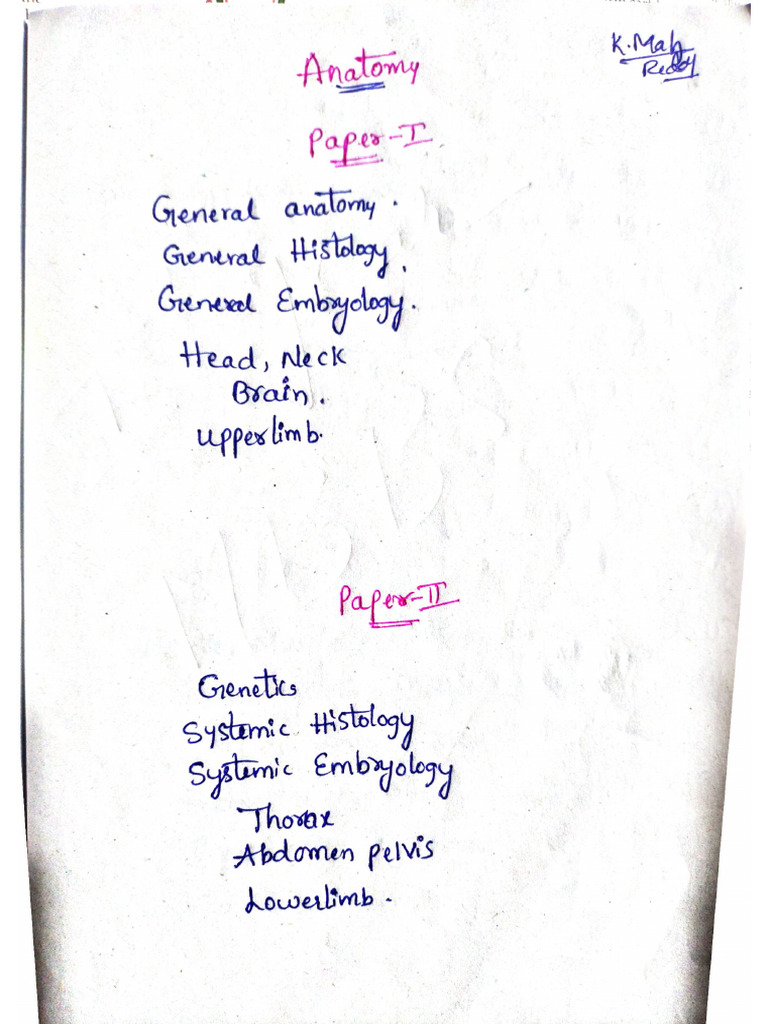 K. Mah
Reddy
Anatomy
Paper-I
General anatomy.
General Histology.
General Embryology.
Head, Neck
Brain.
Upperlimb.
Paper-II
Genetics
Systemic Histology
Systemic Embryology
Thorax
Abdomen pelvis
Lowerlimb.